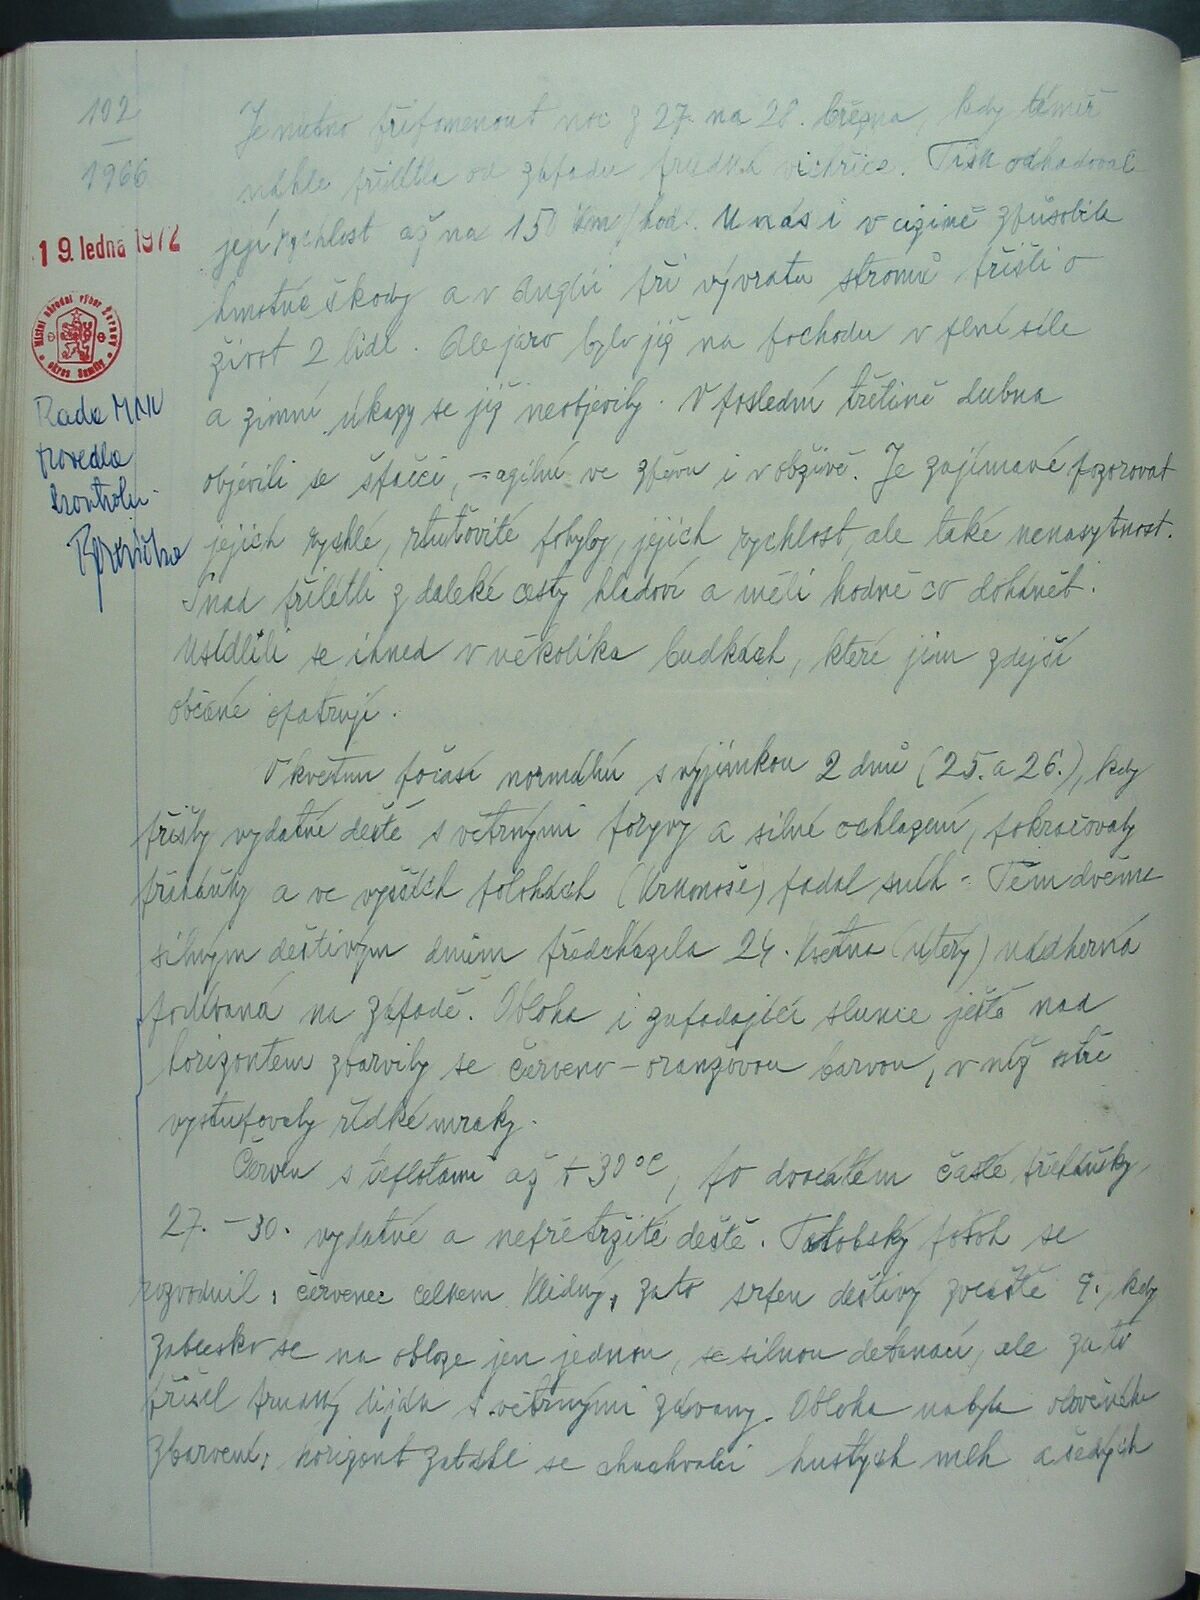 102
1966
19. ledna 1972
Místní národní výbor
okres Semily
Rada MNV
provedla
kontrolu.
Je nutno připomenout noc z 27. na 28. března, kdy téměř
náhle přišla od západu prudká vichřice. Tisk odhadoval
její rychlost až na 150 km/hod. U nás i v cizině způsobila
hmotné škody a v Anglii při vývratu stromů přišli o
život 2 lidé. Ale jaro bylo již na pochodu v plné síle
a zimní úkazy se již neobjevily. V poslední třetině dubna
objevili se špačci, – agilní ve zpěvu i v obživě. Je zajímavé pozorovat
jejich rychlé, rtuťovité pohyby, jejich rychlost, ale také nenasytnost.
Snad přilétli z daleké cesty hladoví a měli hodně co dohánět.
Usídlili se ihned v několika budkách, které jim zdejší
občané opatrují.
V květnu počasí normální s vyjímkou 2 dnů (25. a 26.), kdy
přišly vydatné deště s větrnými poryvy a silné ochlazení, pokračovaly
přeháňky a ve vyšších polohách (Krkonoše) padal sníh. Těm dvěma
silným deštivým dnům předcházela 24. května (úterý) nádherná
podívaná na západě. Obloha i zapadající slunce ještě nad
horizontem zbarvily se červeno-oranžovou barvou, v níž ostře
vystupovaly řídké mraky.
Červen s teplotami až + 30 °C, po dvacátém časté přeháňky,
27. – 30. vydatné a nepřetržité deště. Tatobský potok se
rozvodnil, červenec celkem klidný, zato srpen deštivý zvláště 9., kdy
zablesklo se na obloze jen jednou, se silnou detonací, ale za to
přišel prudký liják s větrnými závany. Obloha nabyla olověného
zbarvení, horizont zatáhl se chuchvalci hustých mlh a šedých